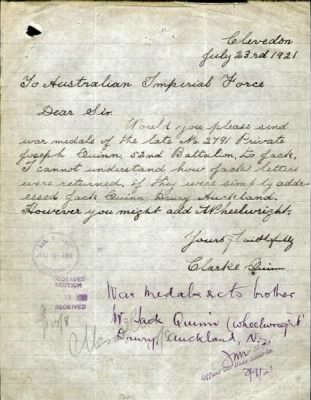 Clevedon
July 23rd 1921
To Australian Imperial Force
Dear Sir.
Would you please send
war medals of the late No. 2791 Private
Joseph Quinn, 52nd Battalion, to Jack.
I cannot understand how Jacks letters
were returned, if they were simply addr-
essed Jack Quinn Drury Auckland.
However you might add Wheelwright.
Yours faithfully
Clarke Quinn
DECEASED
SECTION
RECEIVED
War medals &c to brother
Mr Jack Quinn (Wheelwright
Drury, Auckland, N.Z.